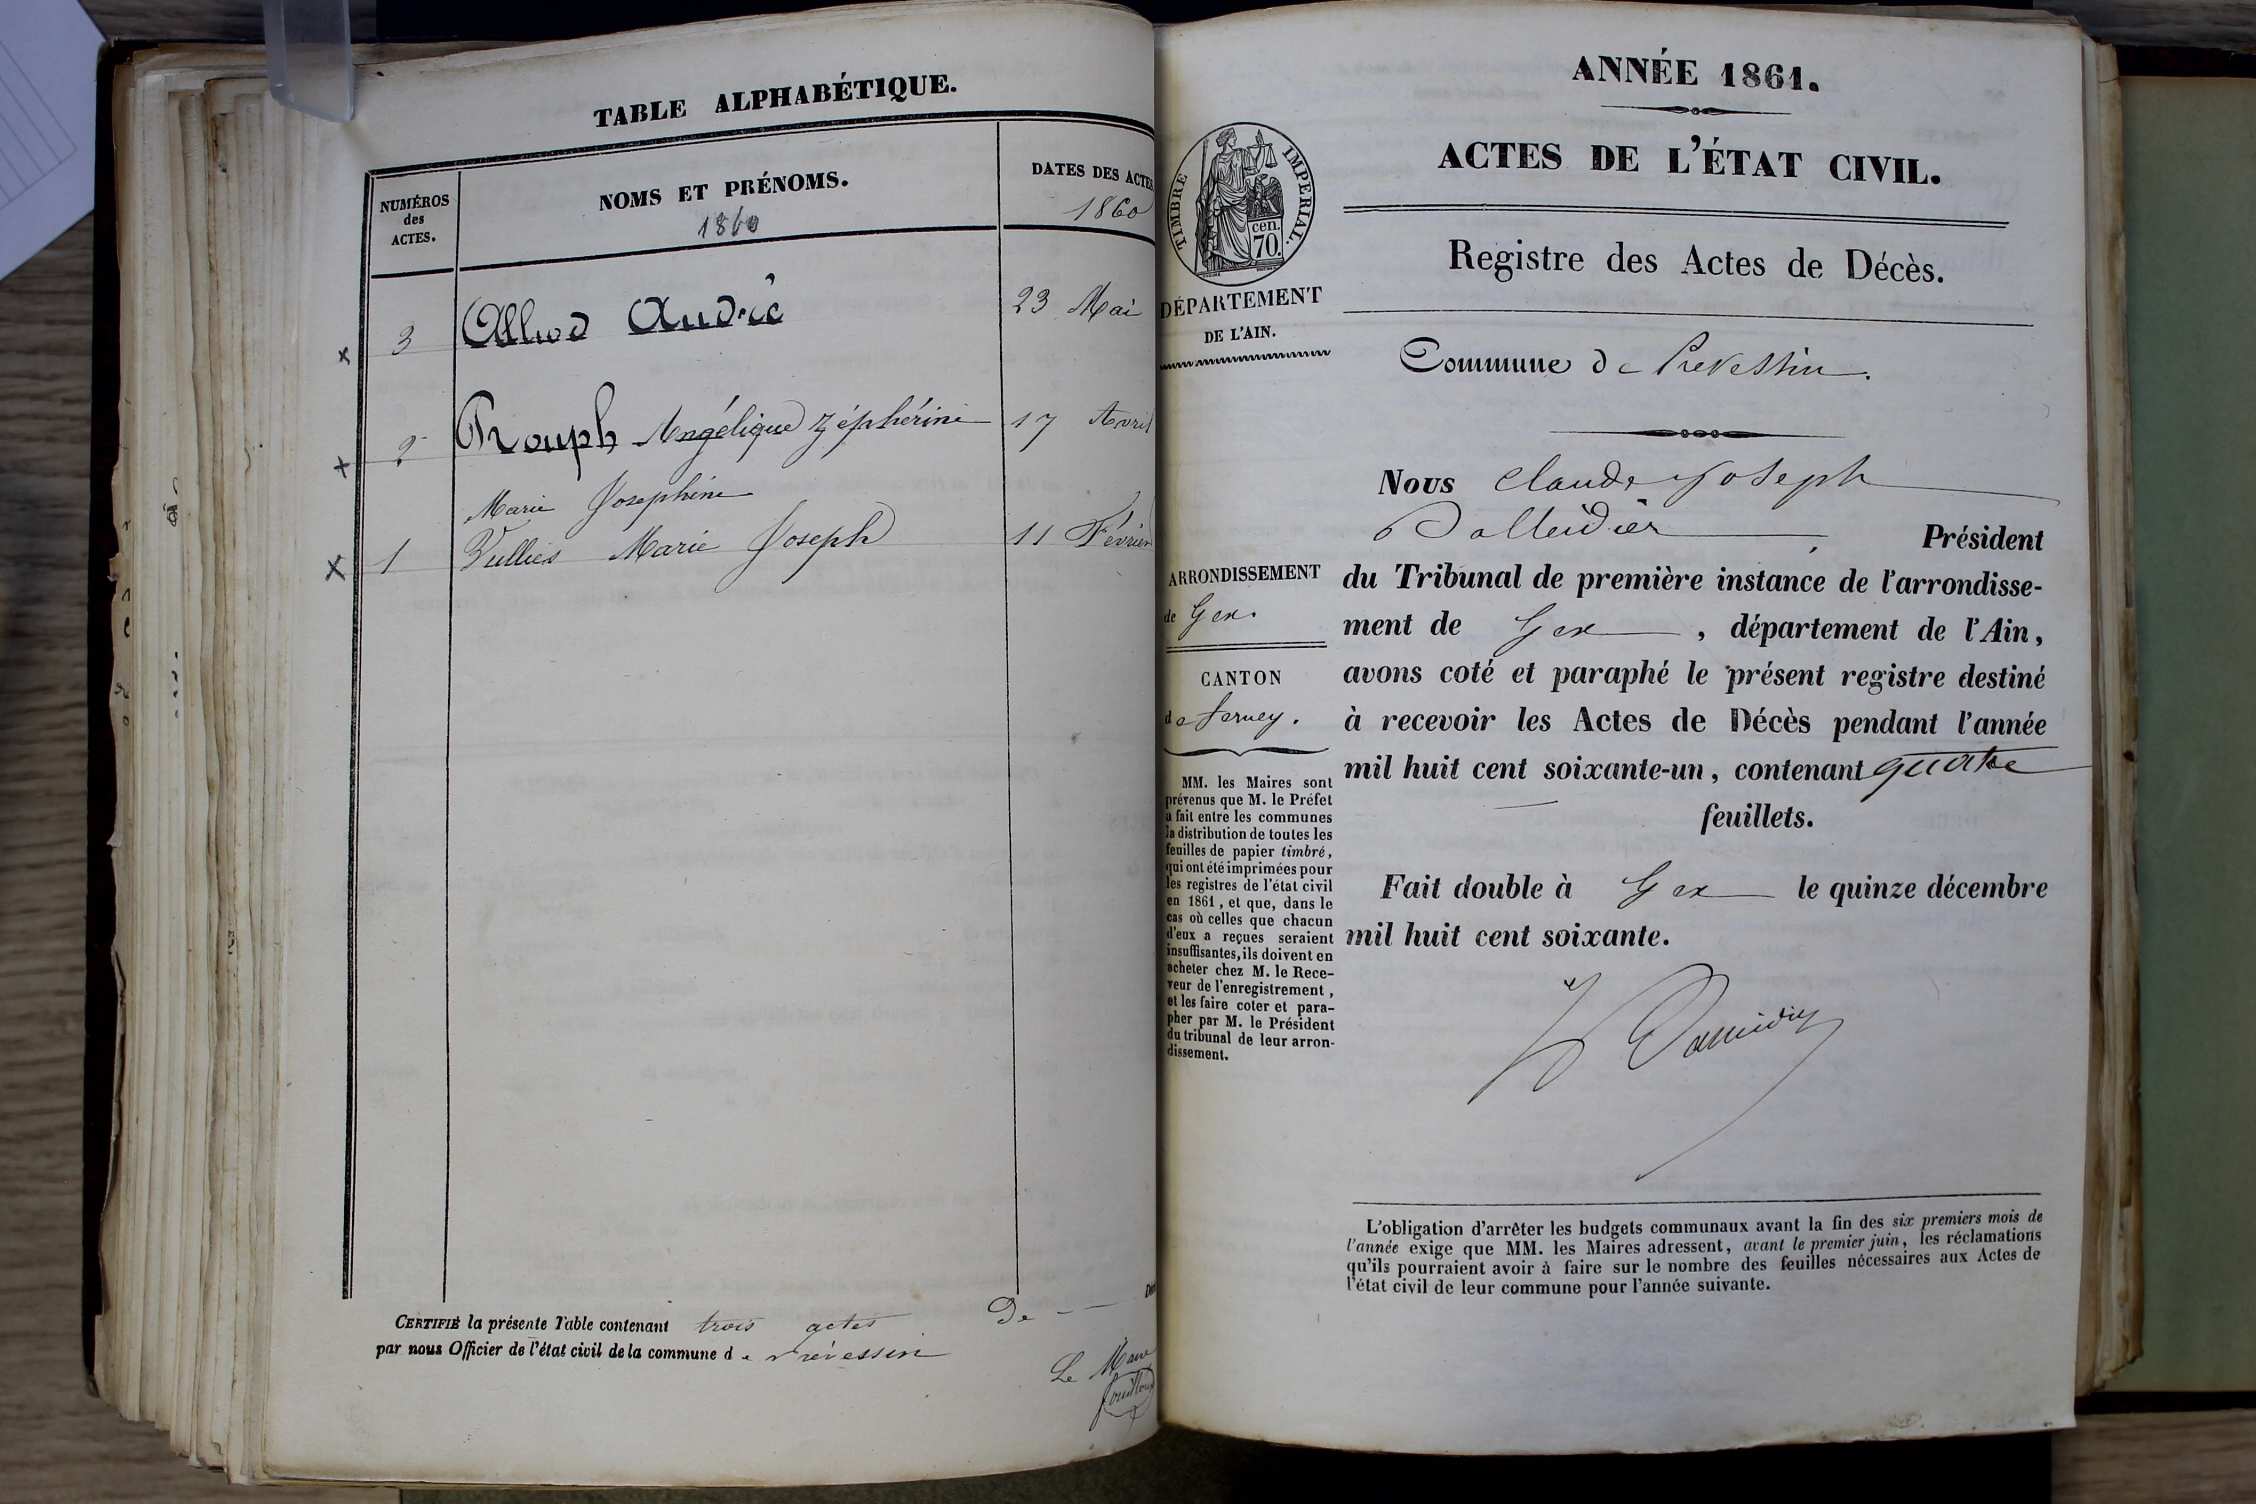 TABLE ALPHABÉTIQUE.
NUMÉROS
des
ACTES.
NOMS ET PRÉNOMS.
1860
DATES DES ACTES
1860
3 Alliod André 23 Mai
2 Rouph Angélique Zéphérine 17 Avril
Marie Josephine
1 Vulliés Marie Joseph 11 Février
CERTIFIÉ la présente Table contenant trois actes De
par nous Officier de l'état civil de la commune de Prévessin
Le Maire
ANNÉE 1861.
ACTES DE L'ÉTAT CIVIL.
TIMBRE IMPERIAL.
cen.
70.
DÉPARTEMENT
DE L'AIN.
ARRONDISSEMENT
de Gex.
CANTON
de Ferney.
MM. les Maires sont
prévenus que M. le Préfet
a fait entre les communes
la distribution de toutes les
feuilles de papier timbré,
qui ont été imprimées pour
les registres de l'état civil
en 1861, et que, dans le
cas où celles que chacun
d'eux a reçues seraient
insuffisantes, ils doivent en
acheter chez M. le Rece-
veur de l'enregistrement,
et les faire coter et para-
pher par M. le Président
du tribunal de leur arron-
dissement.
Registre des Actes de Décès.
Commune de Prevessin.
Nous Claude Joseph
Président
du Tribunal de première instance de l'arrondisse-
ment de Gex, département de l'Ain,
avons coté et paraphé le présent registre destiné
à recevoir les Actes de Décès pendant l'année
mil huit cent soixante-un, contenant quatre
feuillets.
Fait double à Gex le quinze décembre
mil huit cent soixante.
L'obligation d'arrêter les budgets communaux avant la fin des six premiers mois de
l'année exige que MM. les Maires adressent, avant le premier juin, les réclamations
qu'ils pourraient avoir à faire sur le nombre des feuilles nécessaires aux Actes de
l'état civil de leur commune pour l'année suivante.